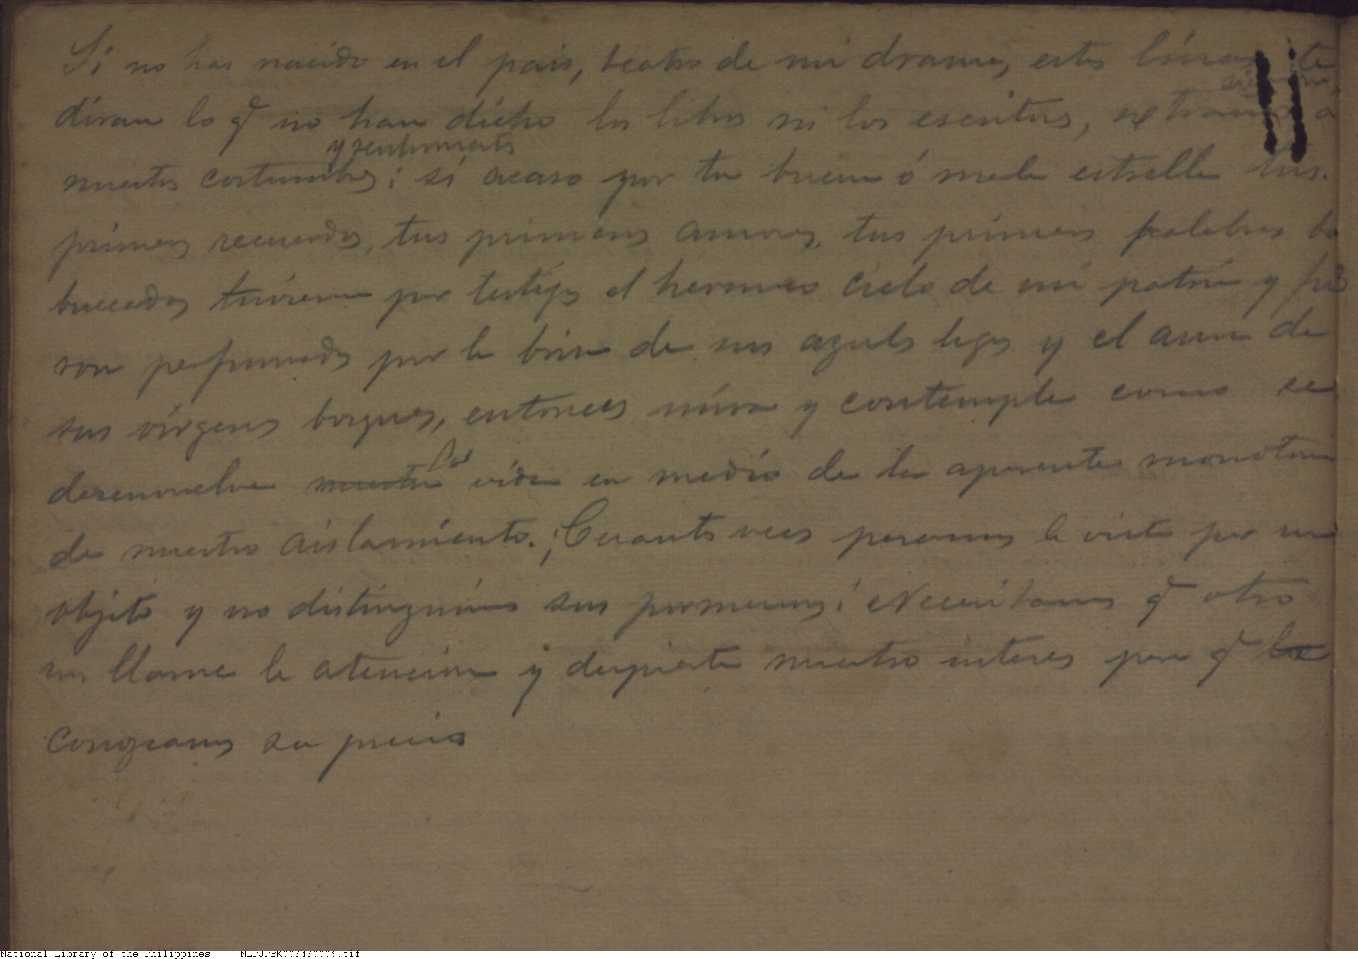 Si no has nacido en el pais, teatro de mi drama, estas líneas te
diran lo q̃ no han dicho los libros ni los escritos, extraños a
nuestras costumbres y sentimientos; si acaso por tu buena ó mala estrella tus
primeros recuerdos, tus primeros amores, tus primeras palabras bal
buceadas tuvieron por testigo el hermoso cielo de mi patria y fue
ron perfumados por la brisa de sus azules lagos y el aura de
sus vírgenes bosques, entonces mira y contempla como se
desenvuelve la vida en medio de la aparente monotonia
de nuestro aislamiento. ¡Cuantas veces paseamos la vista por un
objeto y no distinguimos sus pormenores! Necesitamos q̃ otro
nos llame la atencion y despierte nuestro interes para q̃
conozcamos su precio
National Library of the Philippines